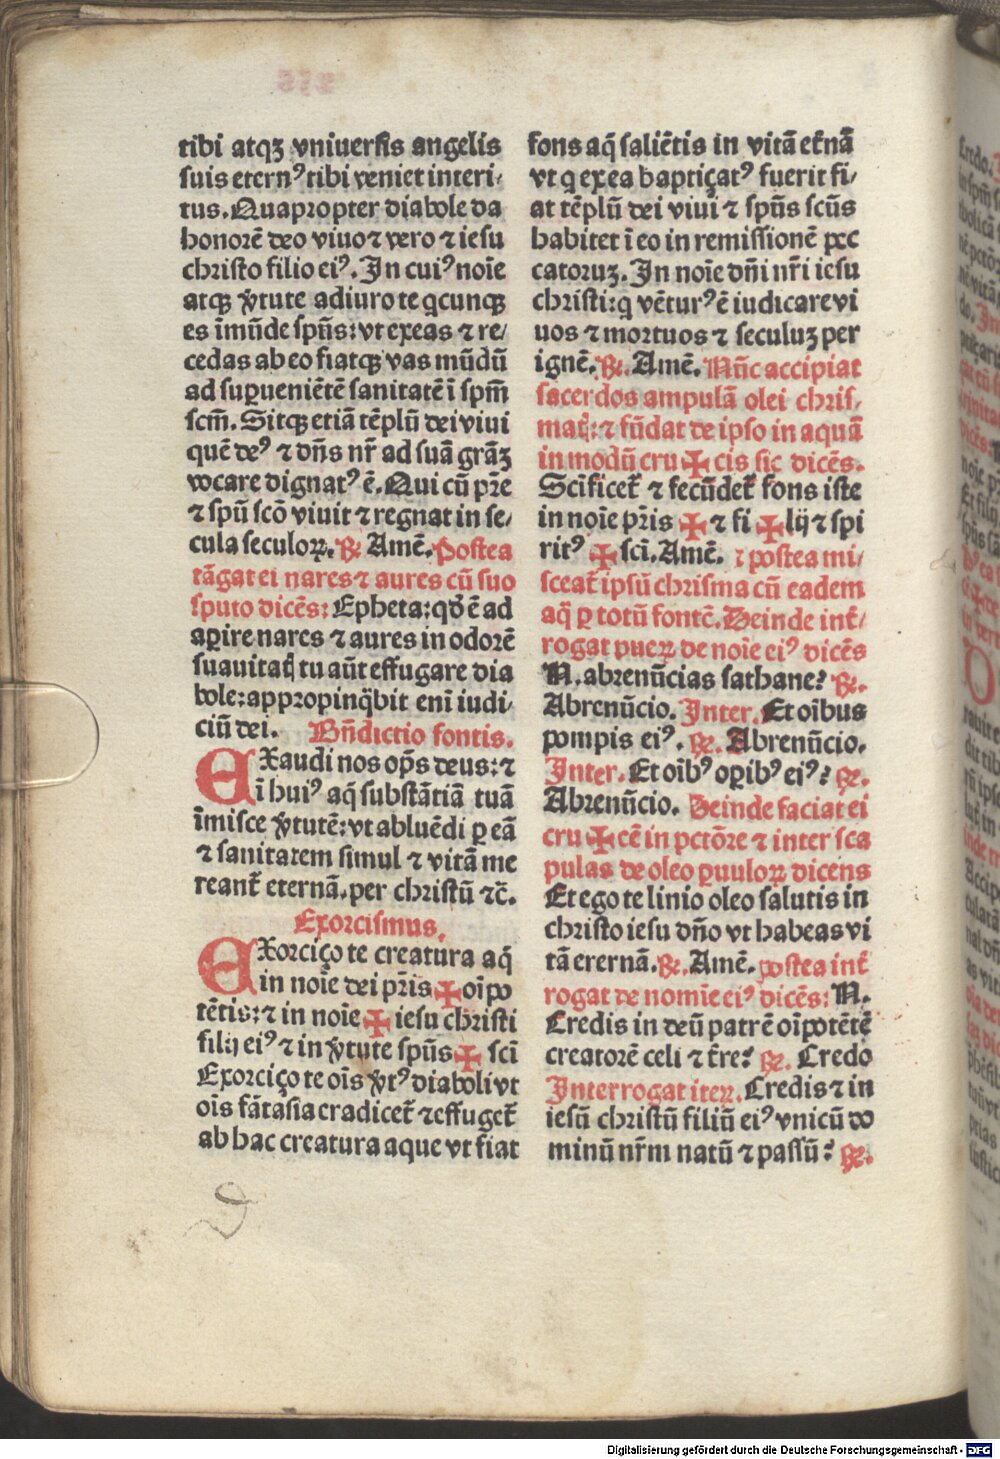 tibi atqꝫ vniuersis angelis
suis eternꝰ tibi veniet interi⸗
tus. Quapropter diabole da
honorē deo viuo ⁊ vero ⁊ iesu
christo filio eiꝰ. In cuiꝰ noīe
atqꝫ v̾tute adiuro te qcunqꝫ
es īmūde spūs: vt exeas ⁊ re⸗
cedas ab eo fiatqꝫ vas mūdū
ad suꝑueniētē sanitatē ī spm̄
scm̄. Sitqꝫ etiā tēplū dei viui
quē deꝰ ⁊ dn̄s nr̄ ad suā grāꝫ
vocare dignatꝰ ē. Qui cū pr̄e
⁊ spū scō viuit ⁊ regnat in se⸗
cula seculoꝝ. ℟. Amē. Postea
tāgat ei nares ⁊ aures cū suo
sputo dicēs: Epheta: qd̄ ē ad
aꝑire nares ⁊ aures in odorē
suauitaꝭ tu aūt effugare dia
bole: appropinq̄bit eni iudi⸗
ciū dei. Bn̄dictio fontis.
EXaudi nos op̄s deus: ⁊
ī huiꝰ aq̄ substātiā tuā
īmisce v̾tutē: vt abluēdi ꝑ eā
⁊ sanitatem simul ⁊ vitā me
reant̄ eternā. per christū ⁊c̄.
Exorcismus.
EXorciço te creatura aq̄
in noīe dei pr̄is ✠ oīpo
tētis: ⁊ in noīe ✠ iesu christi
filij eiꝰ ⁊ in v̾tute spūs ✠ scī
Exorciço te oīs v̾tꝰ diaboli vt
oīs fātasia eradicet̄ ⁊ effuget̄
ab hac creatura aque vt fiat
fons aq̄ saliētis in vitā et̄nā
vt q ex ea baptiçatꝰ fuerit fi⸗
at tēplū dei viui ⁊ spūs scūs
habitet ī eo in remissionē pec
catoruꝫ. In noīe dn̄i nr̄i iesu
christi: q vēturꝰ ē iudicare vi
uos ⁊ mortuos ⁊ seculuꝫ per
ignē. ℟. Amē. Nūc accipiat
sacerdos ampulā olei chris⸗
matꝭ: ⁊ fūdat de ipso in aquā
in modū cru ✠ cis sic dicēs.
Scīficet̄ ⁊ fecūdet̄ fons iste
in noīe pr̄is ✠ ⁊ fi ✠ lij ⁊ spi
ritꝰ ✠ scī. Amē. ⁊ postea mi⸗
sceat̄ ipsū chrisma cū eadem
aq̄ ꝑ totū fontē. Deinde int̄⸗
rogat pueꝝ de noīe eiꝰ dicēs
N. abrenūcias sathane? ℟.
Abrenūcio. Inter. Et oībus
pompis eiꝰ. ℟. Abrenūcio.
Inter. Et oībꝰ oꝑibꝰ eiꝰ? ℟.
Abrenūcio. Deinde faciat ei
cru ✠ cē in pctōre ⁊ inter sca
pulas de oleo puuloꝝ dicens
Et ego te linio oleo salutis in
christo iesu dn̄o vt habeas vi
tā erernā. ℟. Amē. postea int̄
rogat de nomīe eiꝰ dicēs: N.
Credis in deū patrē oīpotētē
creatorē celi ⁊ t̄re? ℟. Credo
Interrogat iteꝝ. Credis ⁊ in
iesū christū filiū eiꝰ vnicū do
minū nr̄m natū ⁊ passū? ℟.
Digitalisierung gefördert durch die Deutsche Forschungsgemeinschaft - DFG